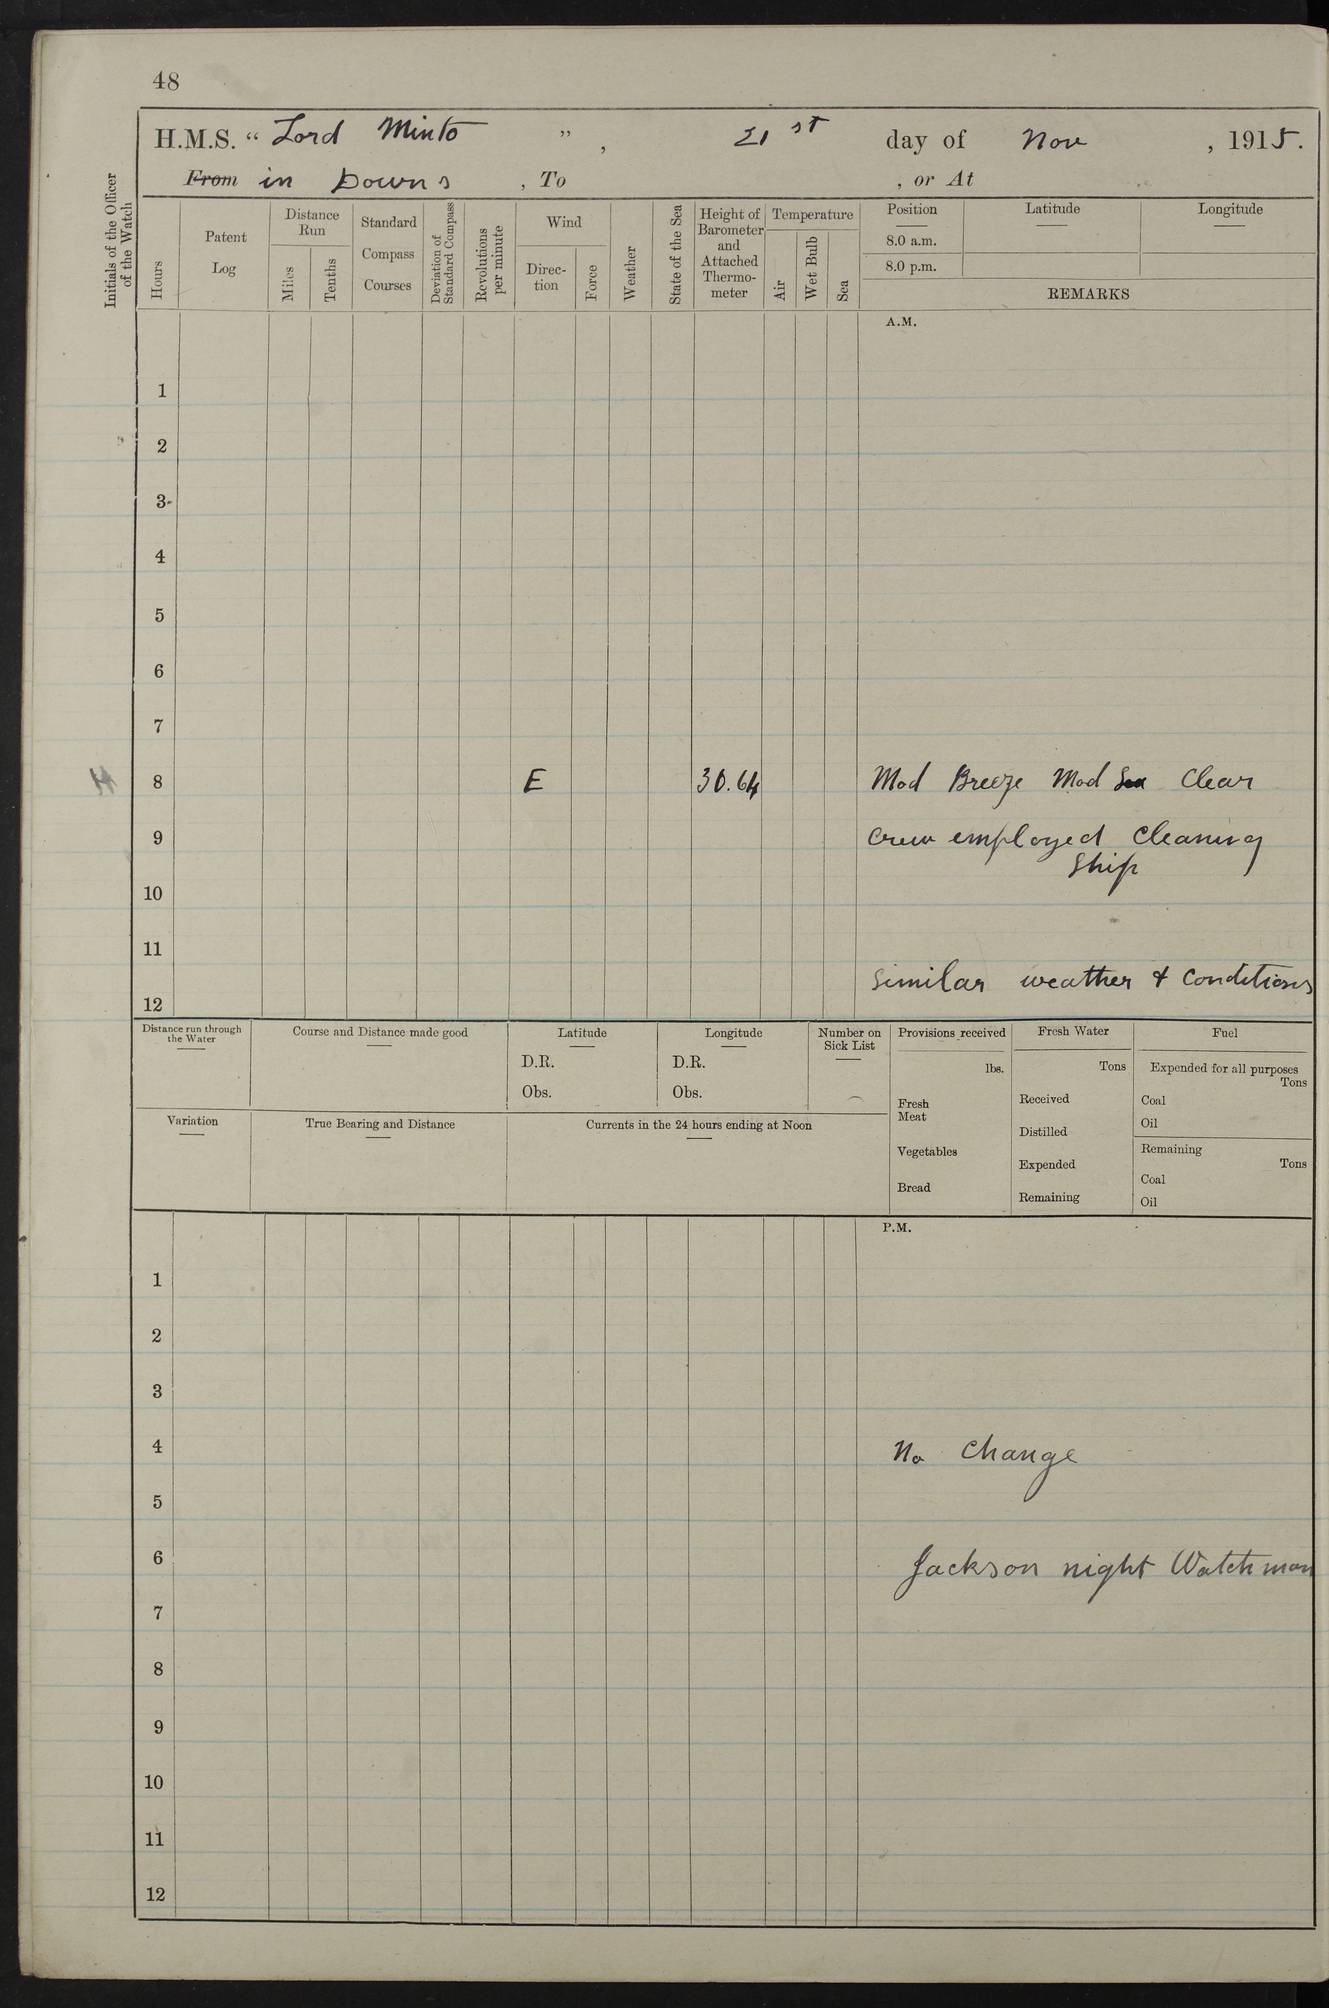 48
H.M.S. “ Lord Minto ” , 21st day of Nov , 1915.
From in Downs , To , or At
Initials of the Officer of the Watch
Hours
Patent Log
Distance Run
Miles
Tenths
Standard Compass Courses
Deviation of Standard Compass
Revolutions per minute
Wind
Direc-tion
Force
Weather
State of the Sea
Height of Barometer and Attached Thermo-meter
Temperature
Air
Wet Bulb
Sea
Position
8.0 a.m.
8.0 p.m.
Latitude
Longitude
REMARKS
A.M.
1
2
3
4
5
6
7
8 E 30.64 Mod Breeze Mod Sea Clear
9 Crew employed Cleaning
Ship
10
11
Similar weather & Conditions
12
Distance run through the Water
Course and Distance made good
Latitude
D.R.
Obs.
Longitude
D.R.
Obs.
Number on Sick List
Provisions received
lbs.
Fresh Meat
Vegetables
Bread
Fresh Water
Tons
Received
Distilled
Expended
Remaining
Fuel
Expended for all purposes
Tons
Coal
Oil
Remaining
Tons
Coal
Oil
Variation
True Bearing and Distance
Currents in the 24 hours ending at Noon
P.M.
1
2
3
4 No Change
5
6 Jackson night Watchman
7
8
9
10
11
12